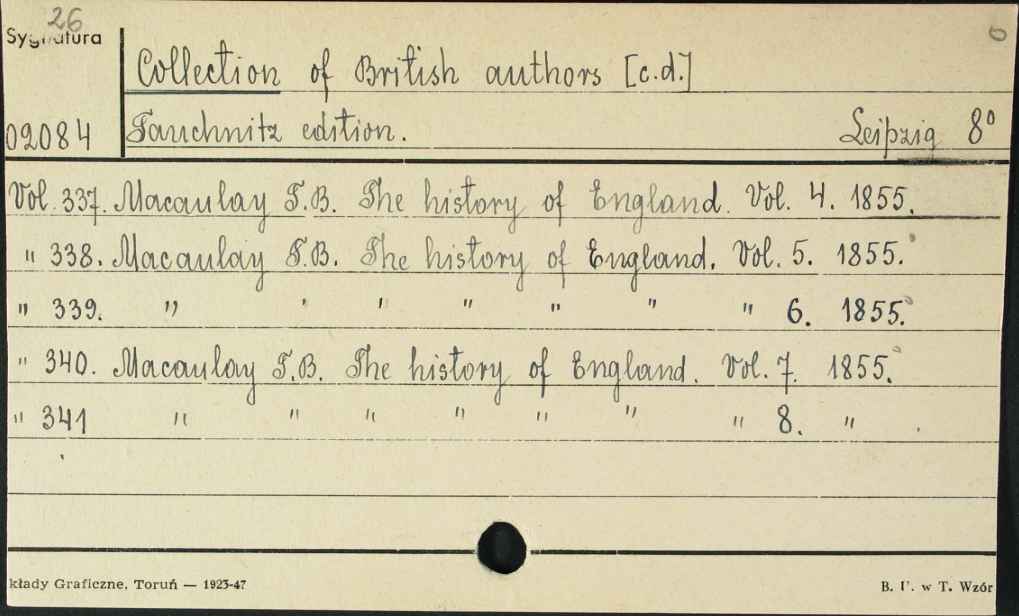 26
Sygnatura
Collection of British authors [c.d.]
02084 Tauchnitz edition. Leipzig 8°
Vol. 337. Macaulay T.B. The history of England. Vol. 4. 1855.
" 338. Macaulay T.B. The history of England. Vol. 5. 1855.
" 339. " " " " " " " 6. 1855.
" 340. Macaulay T.B. The history of England. Vol. 7. 1855.
" 341 " " " " " " " 8. "
kłady Graficzne, Toruń — 1923-47 B. U. w T. Wzór